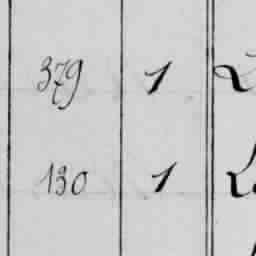 379 1
130 1